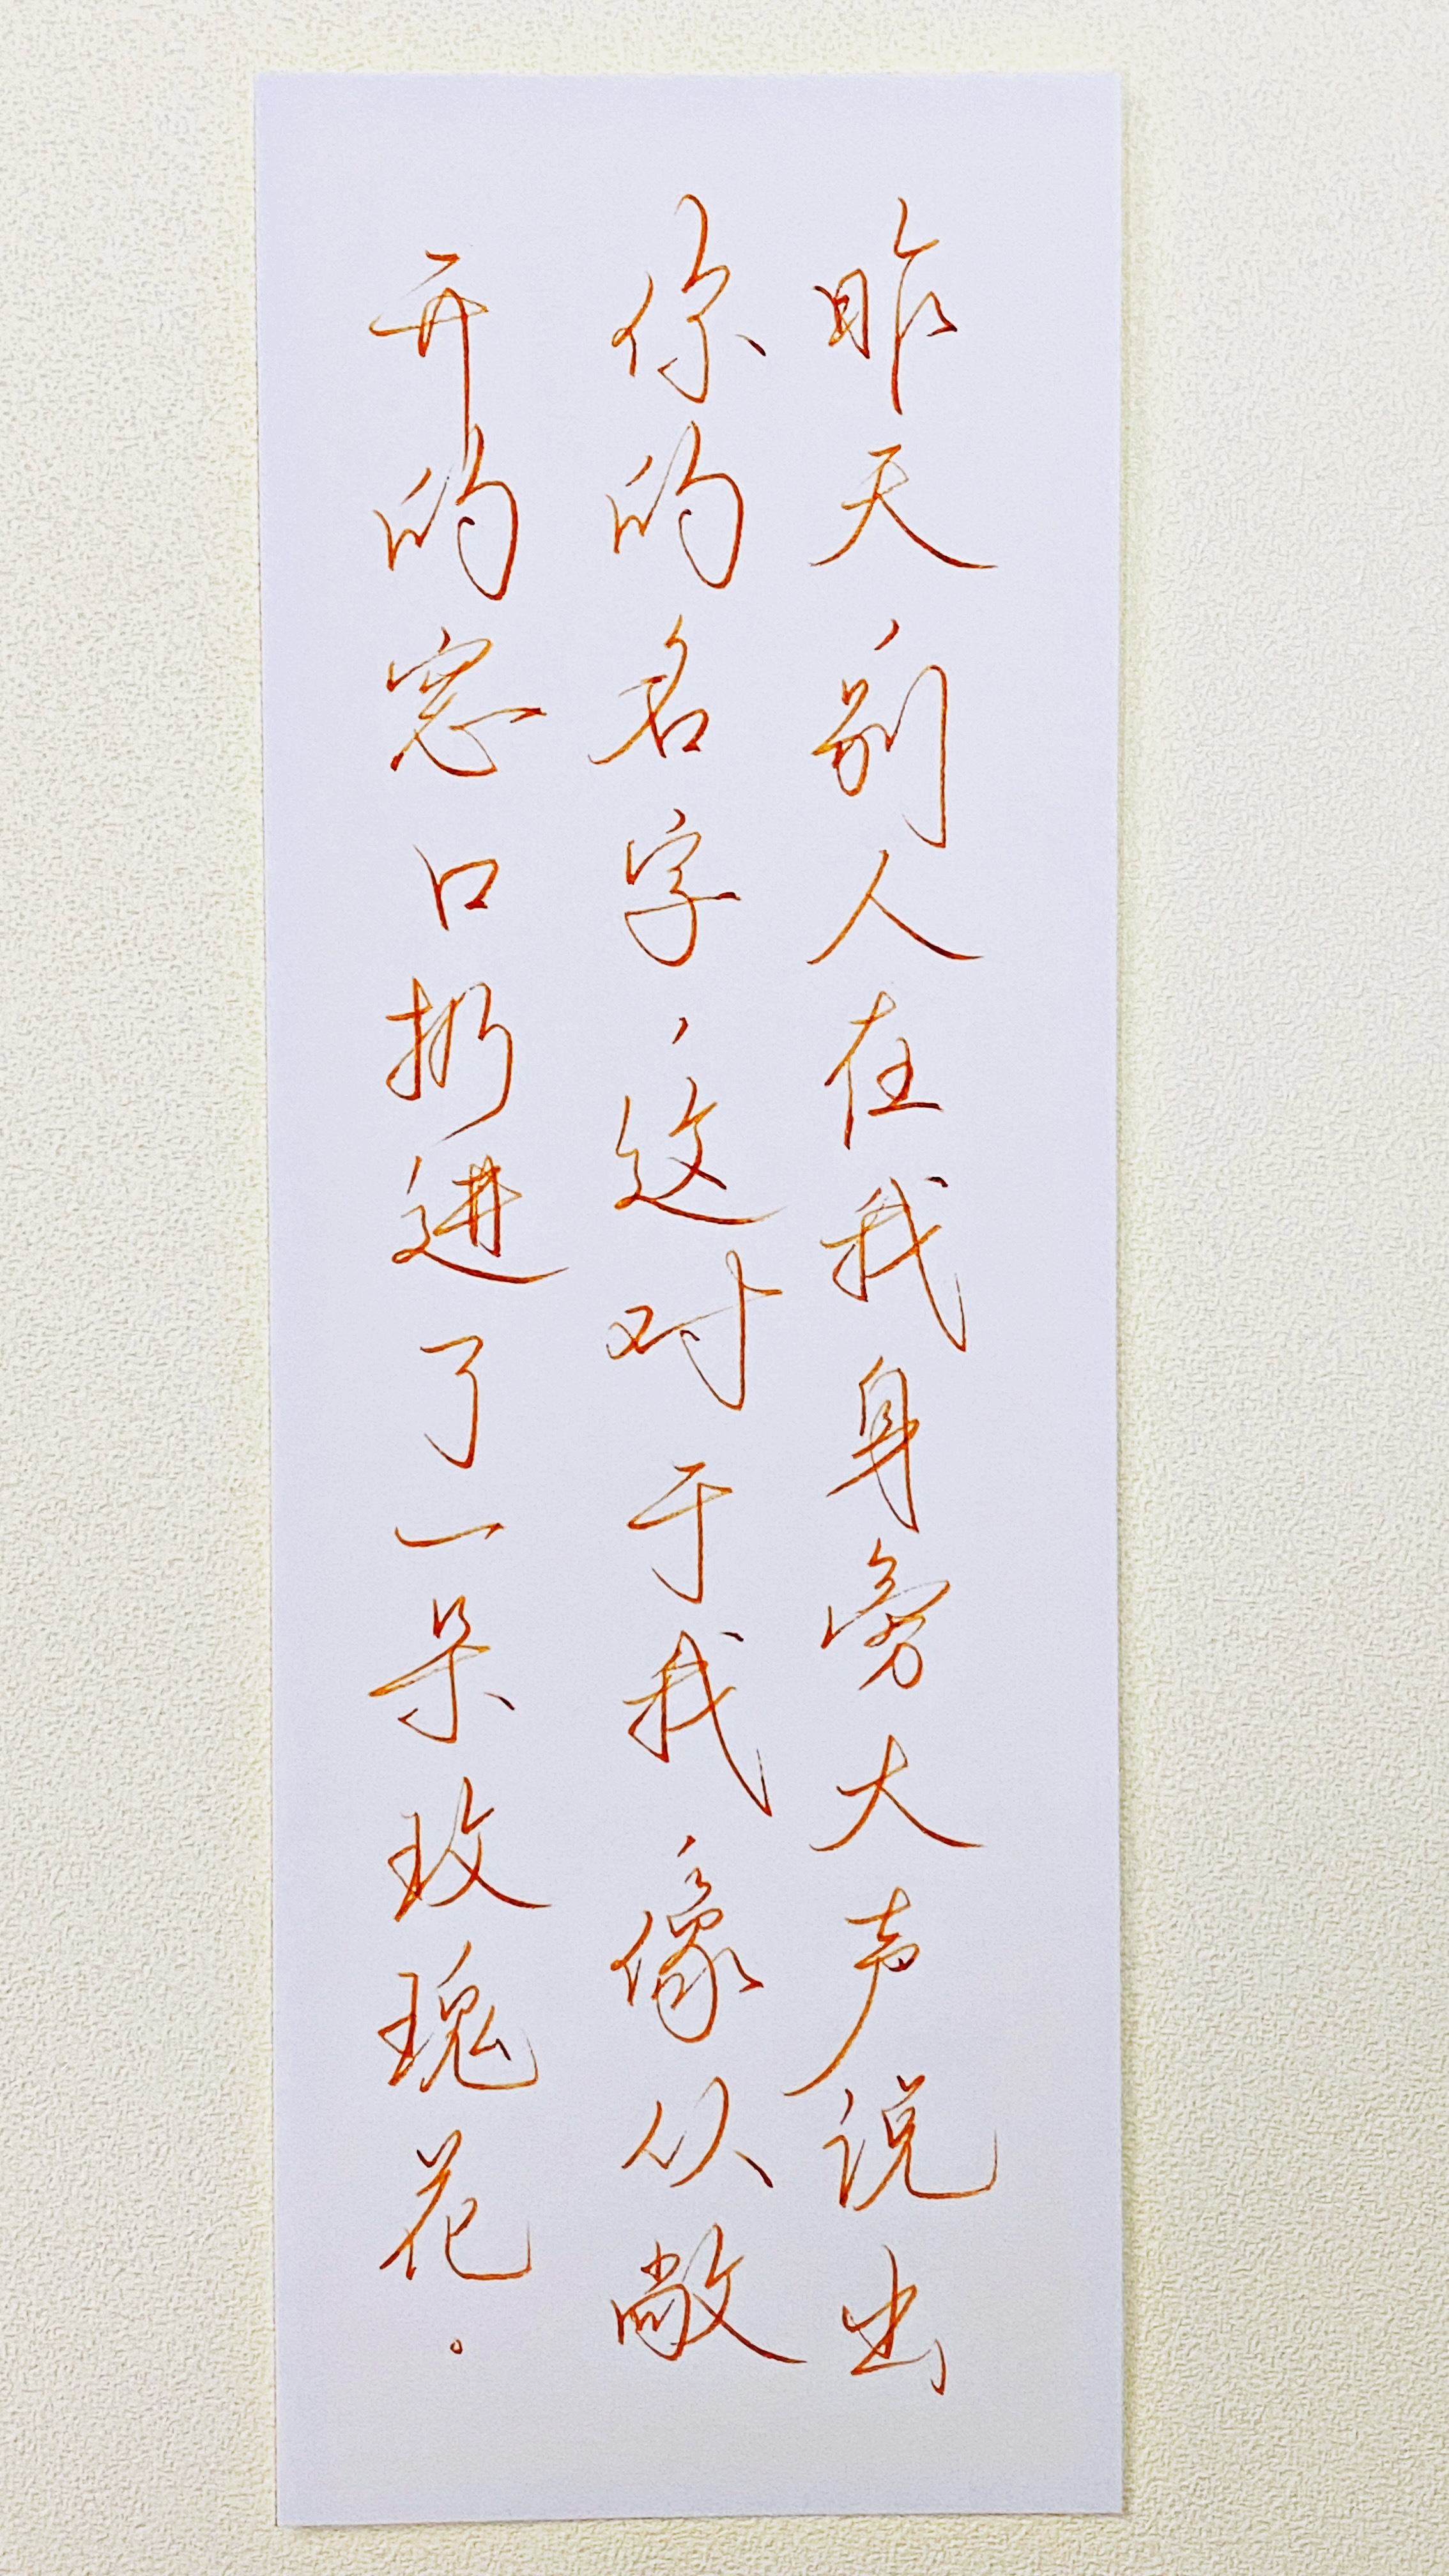 昨天，别人在我身旁大声说出
你的名字，这对于我，像从敞
开的窗口扔进了一朵玫瑰花。